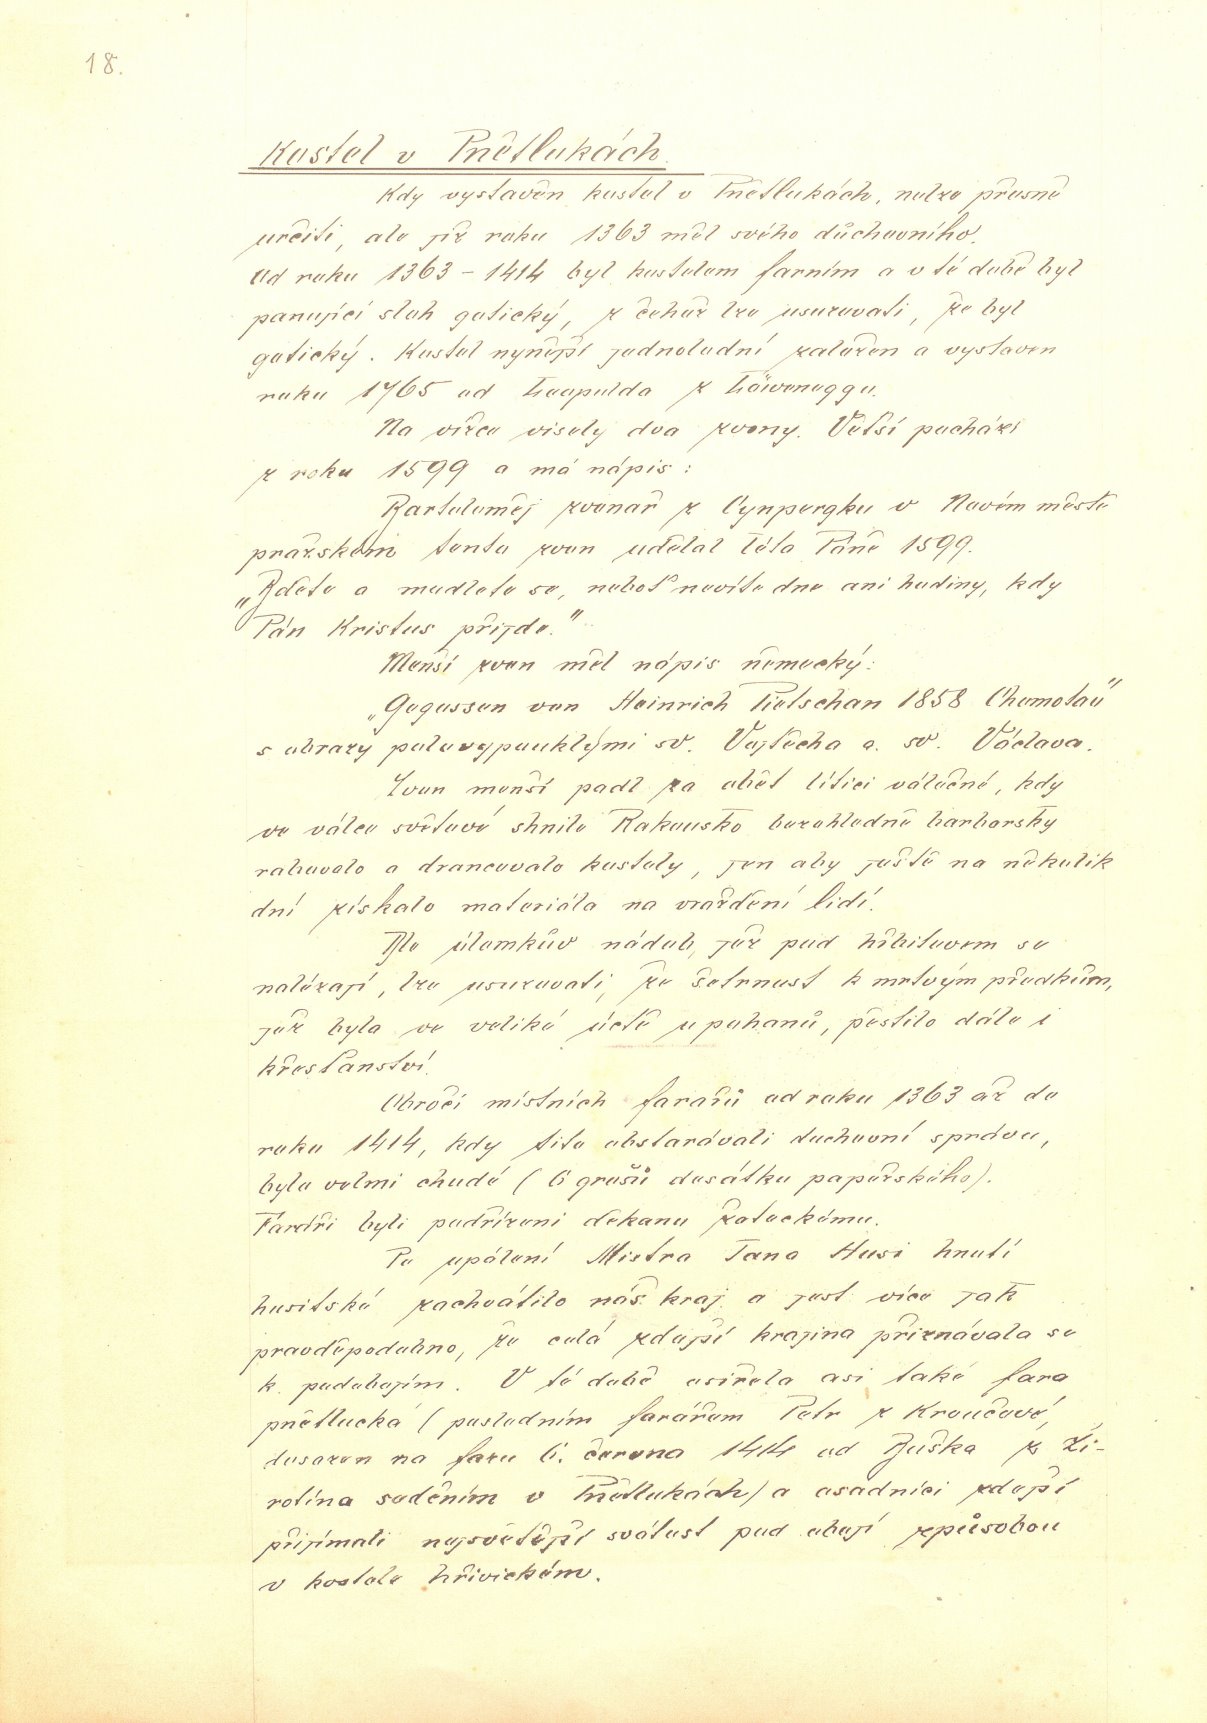 18.
Kostel v Pnětlukách.
Kdy vystavěn kostel v Pnětlukách, nelze přesně
určiti, ale již roku 1363 měl svého důchovního.
Od roku 1363 – 1414 byl kostelem farním a v té době byl
panující sloh gotický, z čehož lze usuzovati, že byl
gotický. Kostel nynější jednolodní založen a vystaven
roku 1765 od Leopolda z Löweneggu.
Na vížce visely dva zvony. Větší pochází
z roku 1599 a má nápis:
Bartoloměj zvonař z Cynpergku v Novém městě
pražském tento zvon udělal léta Páně 1599.
„Bděte a modlete se, neboť nevíte dne ani hodiny, kdy
Pán Kristus přijde."
Menší zvon měl nápis německý:
„Gegossen von Heinrich Pietschan 1858 Chomotau"
s obrazy polovypouklými sv. Vojtěcha a. sv. Václava.
Zvon menší padl za oběť lítici válečné, kdy
ve válce světové shnilé Rakousko bezohledně barborsky
rabovalo a drancovalo kostely, jen aby ještě na několik
dní získalo materiálu na vraždění lidí.
Dle úlomkův nádob, jež pod hřbitovem se
nalézají, lze usuzovati, že šetrnost k mrtvým předkům,
jež byla ve veliké úctě u pohanů, pěstilo dále i
křesťanství.
Obročí místních farářů od roku 1363 až do
roku 1414, kdy tito obstarávali duchovní správu,
bylo velmi chudé (6 grošů desátku papežského).
Faráři byli podřízeni děkanu žateckému.
Po upálení Mistra Jana Husi hnutí
husitské zachvátilo náš kraj a jest více jak
pravděpodobno, že celá zdejší krajina přiznávala se
k podobojím. V té době osiřela asi také fara
pnětlucká (posledním farářem Petr z Kroučové,
dosazen na faru 6. června 1414 od Buška z Ži-
rotína seděním v Pnětlukách) a osadníci zdejší
přijímali nejsvětější svátost pod obojí způsobou
v kostele hřivickém.